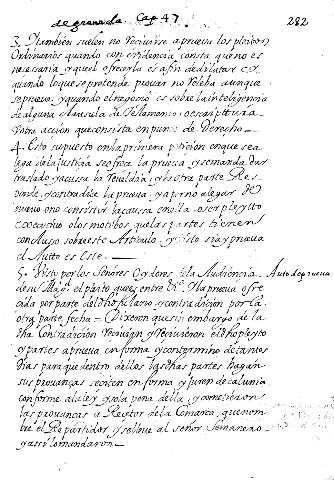 de granada. Cap 47. 282
3. Tambien suelen no recivirse aprueva los pleitos
Ordinarios quando con evidencia consta que no es
necesaria y que el ofrecerla es a fin de dilatar o
quando lo que se pretende provar no releba aunque
se pruebe, y quando el negocio es sobre la inteligencia
de alguna clausula de Testamento o escriptura
u otra accion que consista en punto de Derecho.
4. Esto supuesto en la primera peticion en que se a
lega de la justicia se ofrece la prueva y se manda dar
traslado y acusa la reveldia y la otra parte Res
ponde, y contradice la prueva, y a por no alegar de
nuevo o no consistir la causa en ella o ser pleyto
executivo o los motibos que las partes tienen
concluso sobre este Articulo, y visto si a y prueva
el Autto es este.
5. Visto por los Señores Oydores de la Audiencia Auto de prueva
de su Magd. el pleito que es entre N. la prueva ofre
cida por parte del dho fulano y contradicion por la
otra parte fecha Dixeron que sin embargo de la
dha Contradicion Recivian y Recivieron el dho pleyto
y partes a prueva en forma y con termino de tantos
dias para que dentro dellos las dhas partes hagan
sus provanças se citen en forma y juren de calunia
conforme a la ley y so la pena della, y cometieron
las provanças a Rector de la Comarca, que nom
bre el Repartidor y se llebe al señor Semanero
y assi lo mandaron